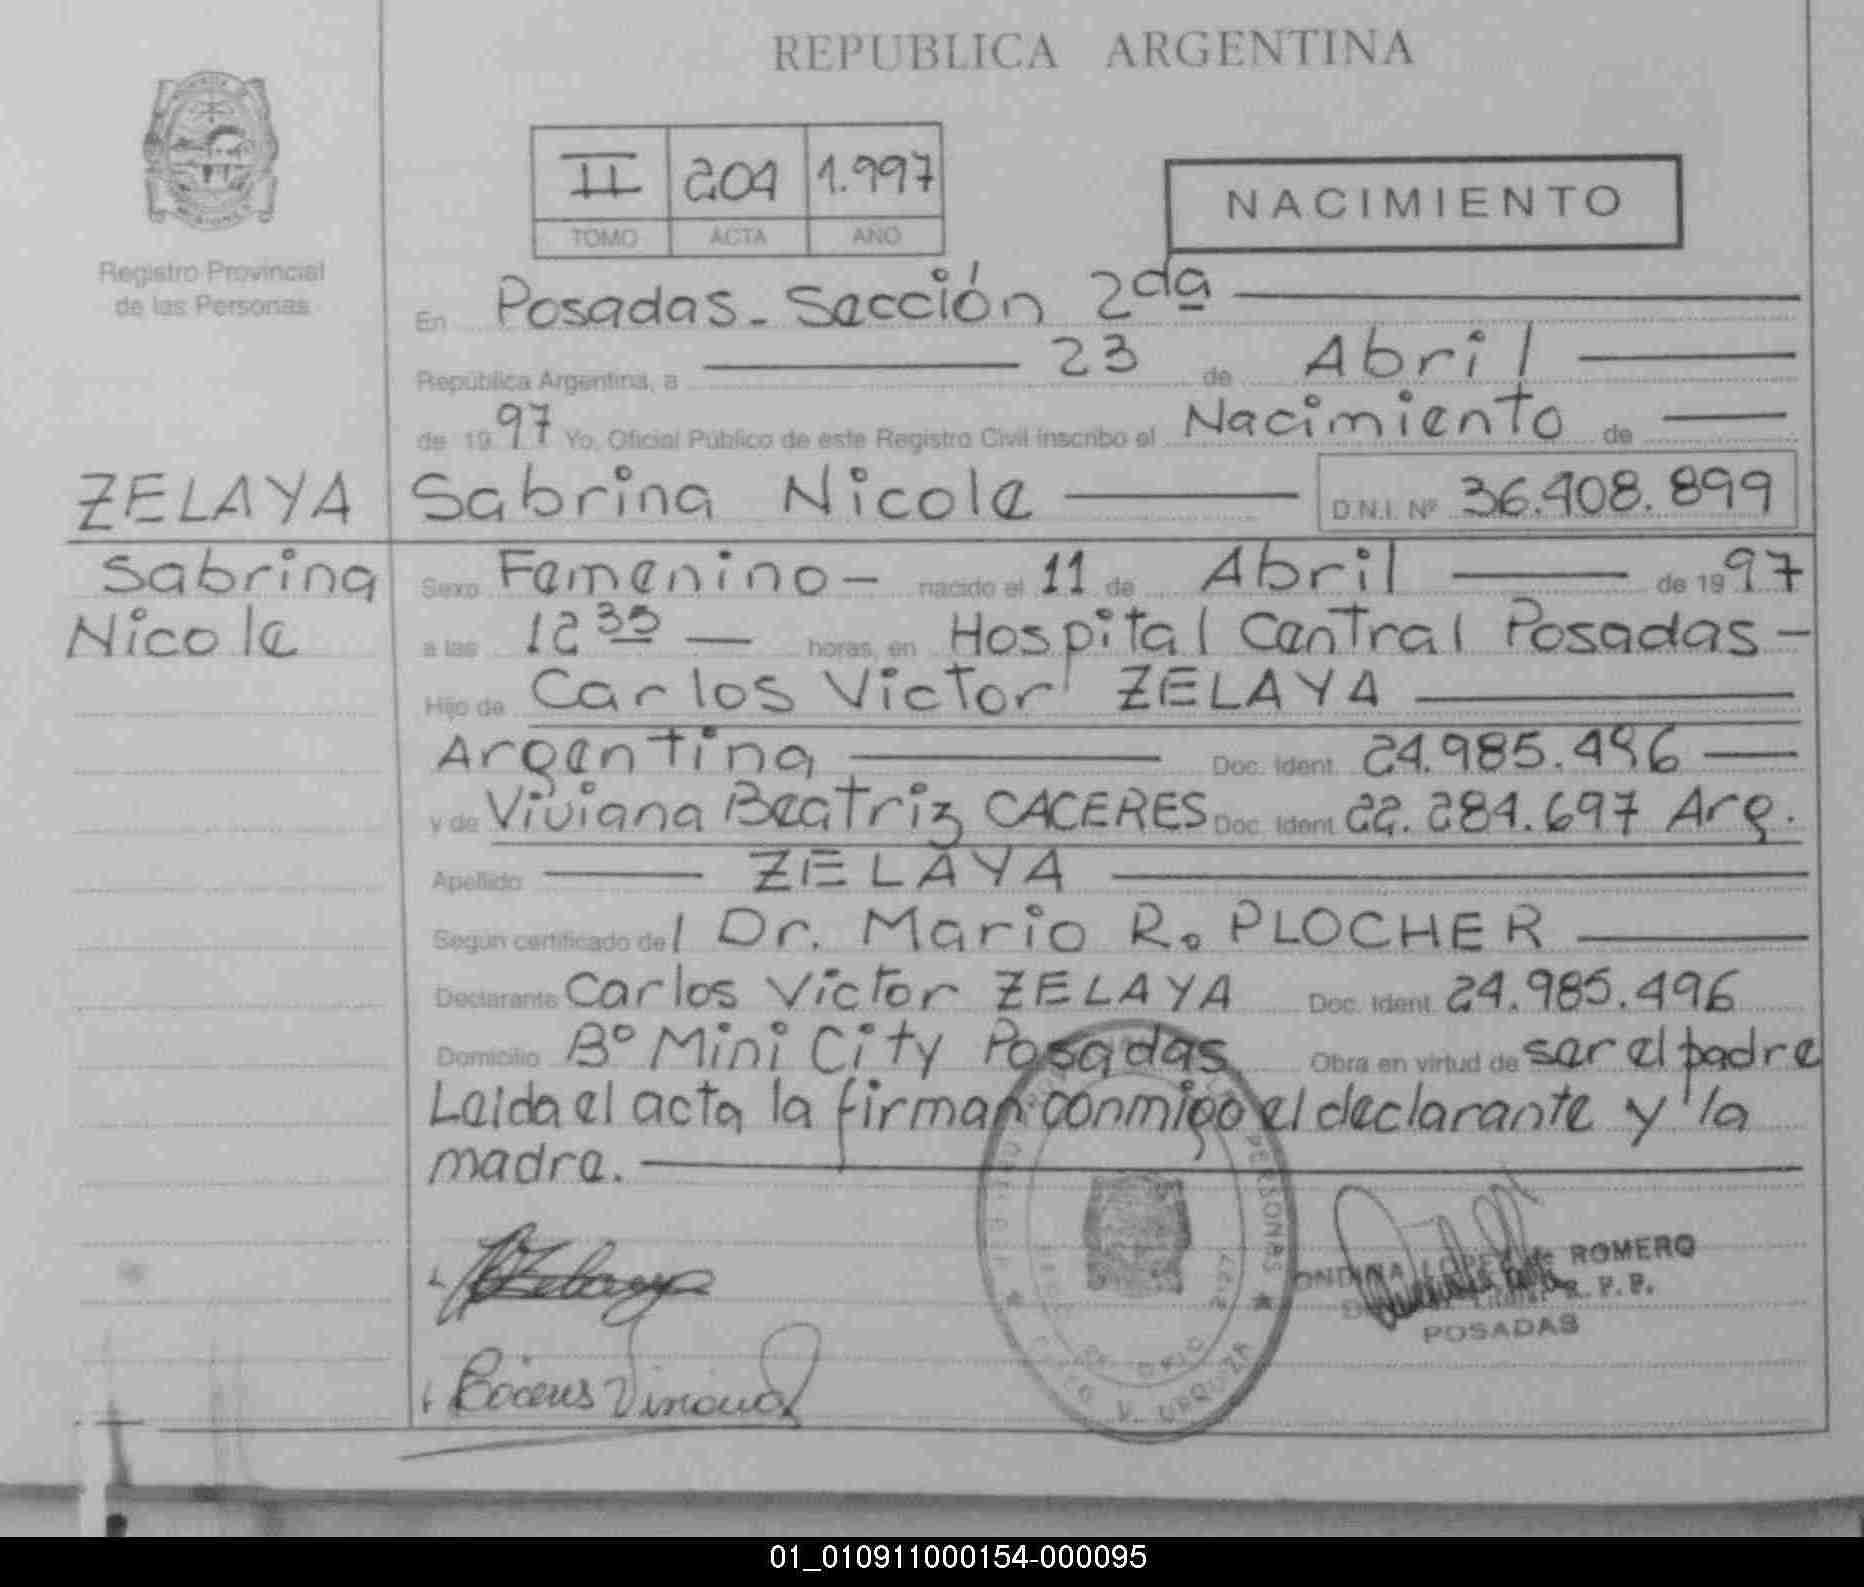 REPUBLICA ARGENTINA
II 204 1.997
TOMO ACTA AÑO
NACIMIENTO
Registro Provincial
de las Personas
En Posadas - Sección 2da
República Argentina, a 23 de Abril
de 1997 Yo, Oficial Público de este Registro Civil inscribo el Nacimiento de
ZELAYA Sabrina Nicole D.N.I. Nº 36.408.899
Sabrina
Nicole
Sexo Femenino - nacido el 11 de Abril de 1997
a las 12 35 horas, en Hospital Central Posadas -
Hijo de Carlos Victor ZELAYA
Argentina Doc. Ident. 24.985.496
y de Viviana Beatriz CACERES Doc. Ident. 22.284.697 Arg.
Apellido ZELAYA
Según certificado del Dr. Mario R. PLOCHER
Declarante Carlos Victor ZELAYA Doc. Ident. 24.985.496
Domicilio Bº Mini City Posadas Obra en virtud de ser el padre
Leida el acta la firman conmigo el declarante y la
madre.
PERSONAS
ROMERO
POSADAS
01_010911000154-000095